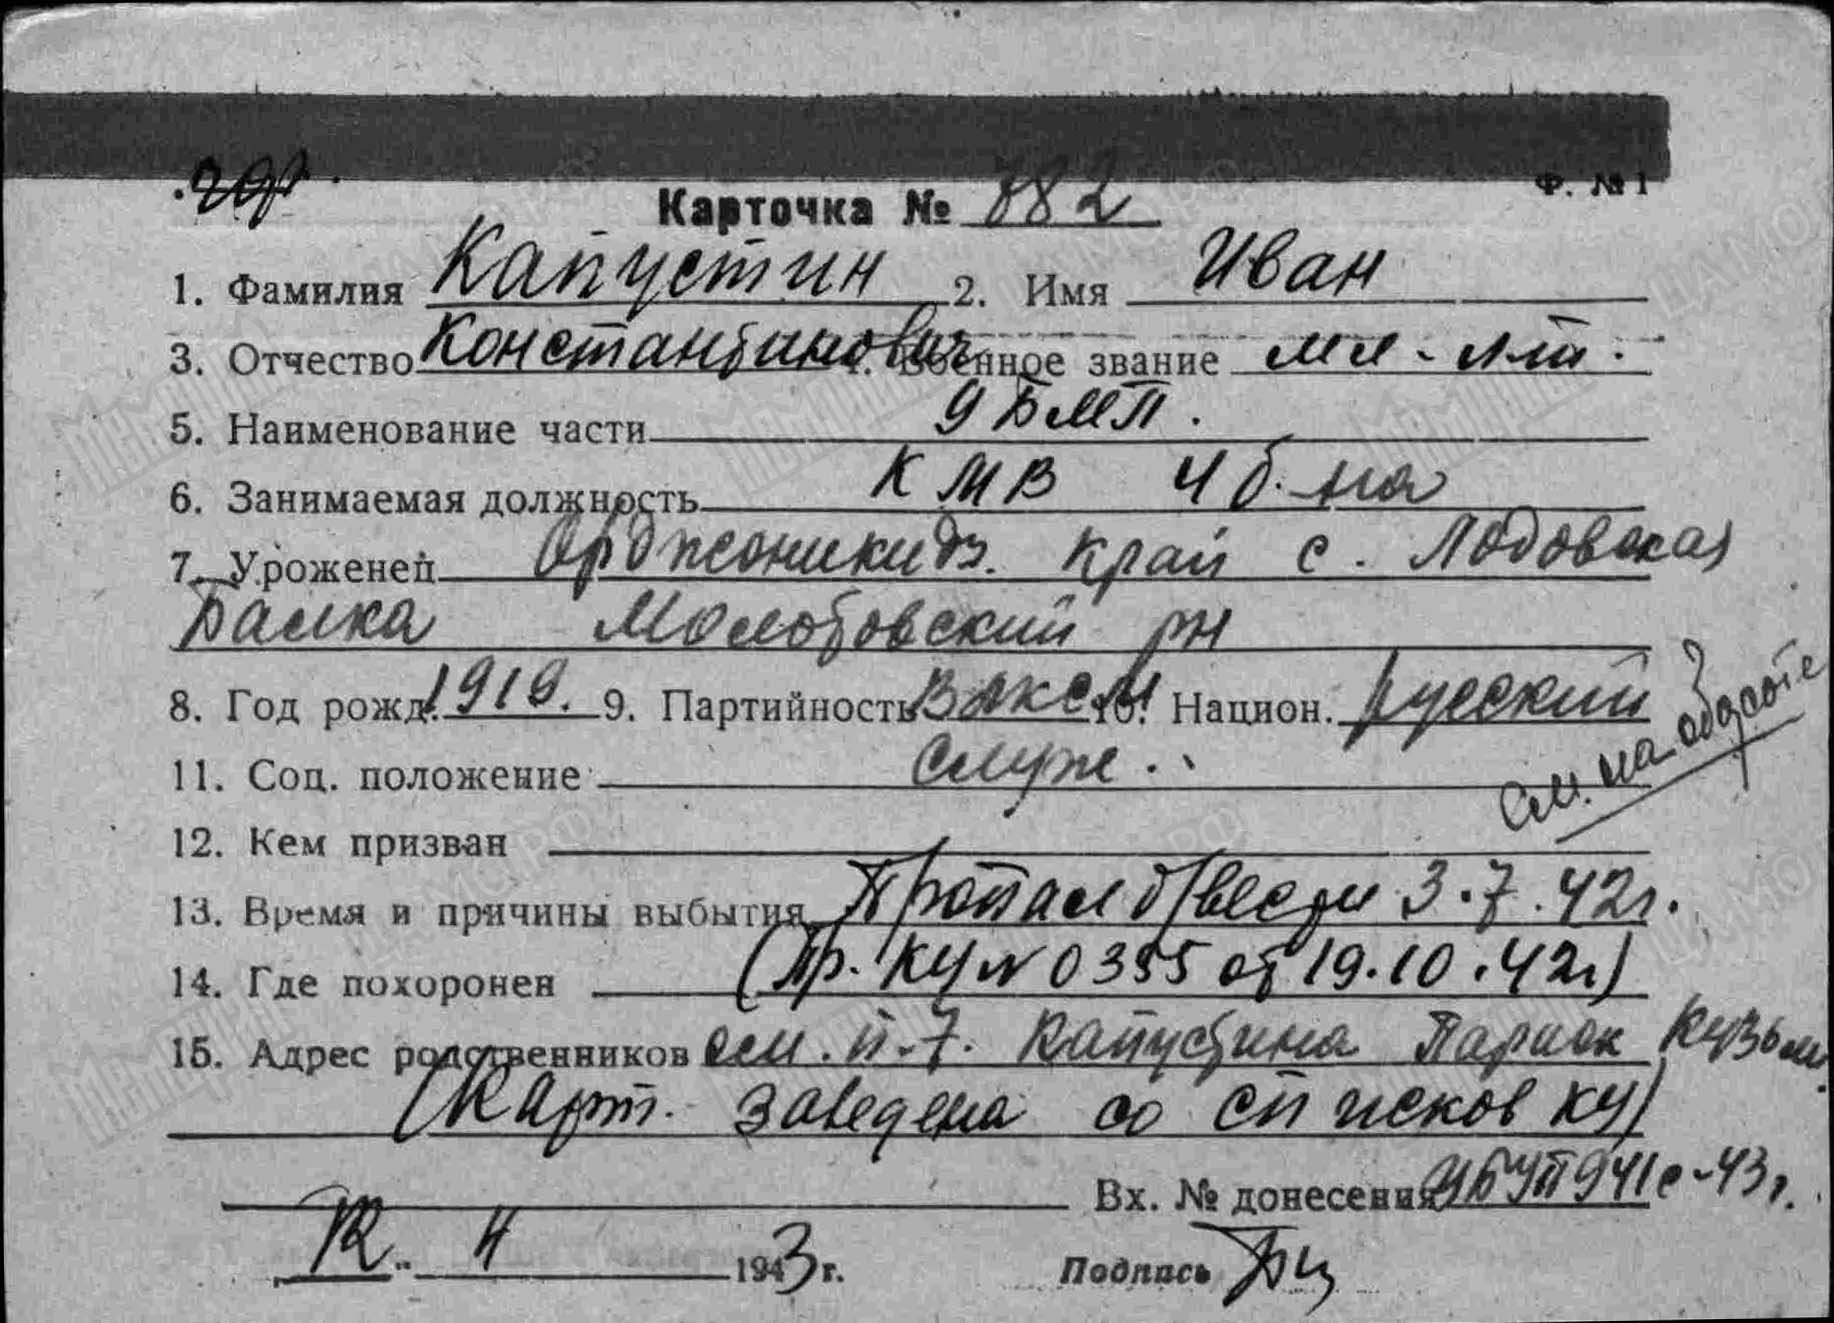 Ф. № 1
Карточка № 782
1. Фамилия Капустин 2. Имя Иван
3. Отчество Константинович 4. Военное звание мл-лт.
5. Наименование части 9 БМП.
6. Занимаемая должность КМВ 4 б-на
7. Уроженец Орджоникидз. край с. Лодовская
Балка Молотовский рн
8. Год рожд. 1919. 9. Партийность ВЛКСМ 10. Национ. русский
11. Соц. положение служ.
См. на обороте
12. Кем призван
13. Время и причины выбытия Пропал б/вести 3.7.42г.
14. Где похоронен (Пр. КУ № 0355 от 19.10.42г)
15. Адрес родственников см. п-7. Капустина Кузьм.
(Карт. заведена со списков КУ)
Вх. № донесения УБУП 941с-43г.
12 4 1943 г. Подпись